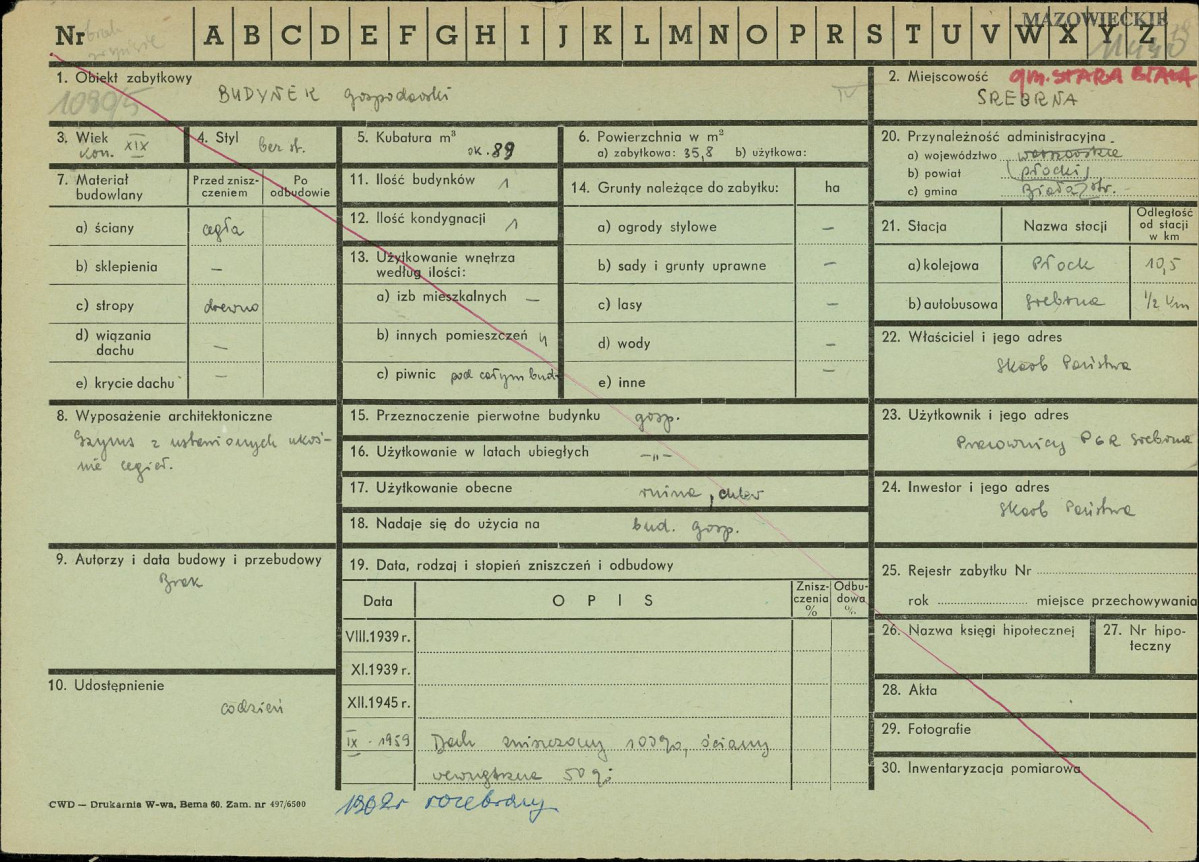 MAZOWIECKIE
Nr brak
A B C D E F G H I J K L M N O P R S T U V W X Y Z
1. Obiekt zabytkowy
1080/5
BUDYNEK gospodarski
2. Miejscowość gm. STARA BIAŁA
SREBRNA
3. Wiek XIX
kon.
4. Styl bez st.
5. Kubatura m³
ok. 89
6. Powierzchnia w m²
a) zabytkowa: 35,8 b) użytkowa:
20. Przynależność administracyjna
a) województwo warszawskie
b) powiat (płocki)
c) gmina Biała str.
7. Materiał budowlany
Przed zniszczeniem
Po odbudowie
a) ściany cegła
b) sklepienia –
c) stropy drewno
d) wiązania dachu –
e) krycie dachu –
11. Ilość budynków 1
12. Ilość kondygnacji 1
13. Użytkowanie wnętrza
według ilości:
a) izb mieszkalnych –
b) innych pomieszczeń 4
c) piwnic pod całym bud.
14. Grunty należące do zabytku: ha
a) ogrody stylowe –
b) sady i grunty uprawne –
c) lasy –
d) wody –
e) inne –
21. Stacja Nazwa stacji Odległość od stacji w km
a) kolejowa Płock 10,5
b) autobusowa Srebrna 1/2 km
22. Właściciel i jego adres
Skarb Państwa
8. Wyposażenie architektoniczne
Gzyms z ustawionych ukoś-
nie cegieł.
15. Przeznaczenie pierwotne budynku gosp.
16. Użytkowanie w latach ubiegłych –„–
17. Użytkowanie obecne ruina, chlew
18. Nadaje się do użycia na bud. gosp.
23. Użytkownik i jego adres
Pracownicy PGR Srebrna
24. Inwestor i jego adres
Skarb Państwa
9. Autorzy i data budowy i przebudowy
Brak
19. Data, rodzaj i stopień zniszczeń i odbudowy
Data OPIS Zniszczenia % Odbudowa %
VIII.1939 r.
XI.1939 r.
XII.1945 r.
IX. 1959 Dach zniszczony 100%, ściany
wewnętrzne 50%
25. Rejestr zabytku Nr
rok miejsce przechowywania
26. Nazwa księgi hipotecznej
27. Nr hipo-
teczny
10. Udostępnienie
codzień
28. Akta
29. Fotografie
30. Inwentaryzacja pomiarowa
CWD — Drukarnia W-wa, Bema 60. Zam. nr 497/6500
1962r rozebrany